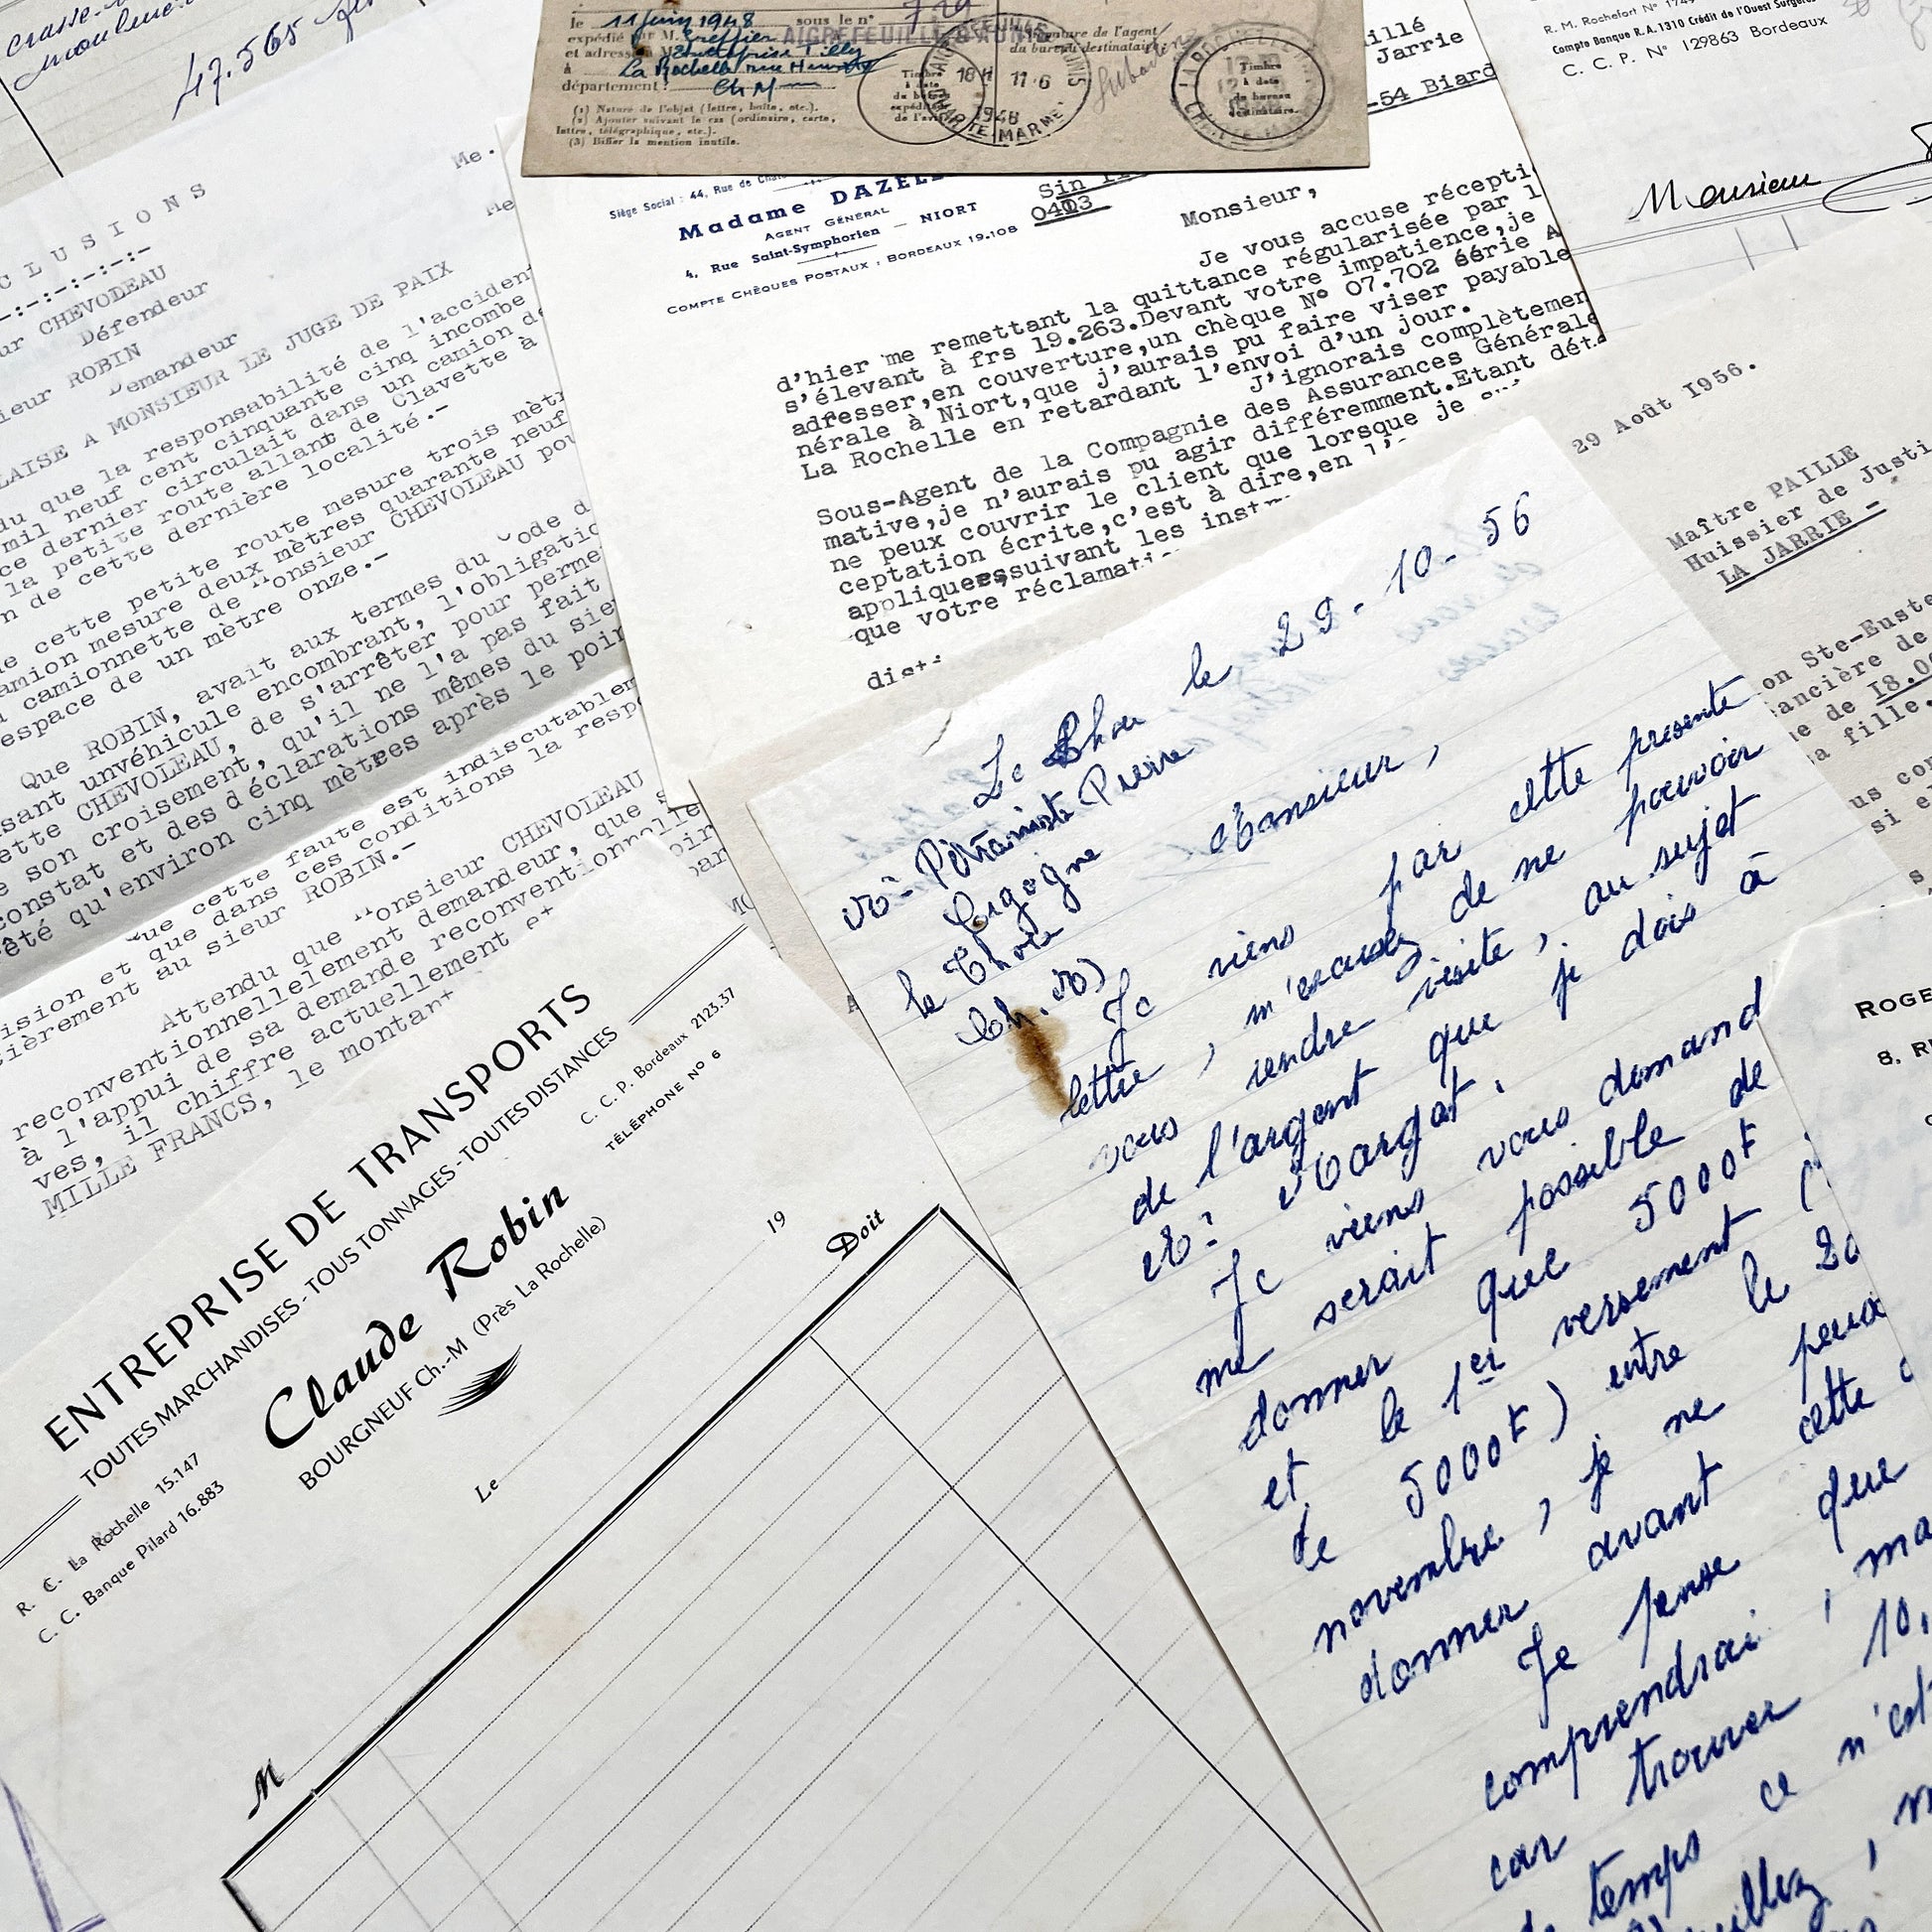 crasse-
47.565
le 11 juin 1948 sous le n° 729
expédié par M. Greffier
et adressé à M. Entreprise Tilly
à La Rochelle rue
département : Ch M
AIGREFEUILLE D'AUNIS
Signature de l'agent
du bureau destinataire
Timbre
à date
du bureau
expéditeur
de l'avis
18 H 11-6
1948
CHARENTE-MARME
LA ROCHELLE
Timbre
à date
du bureau
destinataire.
(1) Nature de l'objet (lettre, boîte, etc.).
(2) Ajouter suivant le cas (ordinaire, carte,
lettre, télégraphique, etc.).
(3) Biffer la mention inutile.
illé
Jarrie
-54 Biard
R. M. Rochefort N°
Compte Banque R.A. 1310 Crédit de l'Ouest Surgères
C. C. P. N° 129863 Bordeaux
Monsieur
Me.
Me
CLUSIONS
-:-:-:-:-:-
ur CHEVODEAU
Défendeur
ieur ROBIN
Demandeur
LAISE A MONSIEUR LE JUGE DE PAIX
du que la responsabilité de l'accident
mil neuf cent cinquante cinq incombe
ce dernier circulait dans un camion de
la petite route allant de Clavette à
n de cette dernière localité.-
e cette petite route mesure trois mètr
amion mesure deux mètres quarante neuf
a camionnette de Monsieur CHEVOLEAU pou
espace de un mètre onze.-
Que ROBIN, avait aux termes du Code d
sant unvéhicule encombrant, l'obligatio
ette CHEVOLEAU, de s'arrêter pour perme
e son croisement, qu'il ne l'a pas fait
constat et des déclarations mêmes du sieu
êté qu'environ cinq mètres après le poin
que cette faute est indiscutable
ision et que dans ces conditions la resp
tièrement au sieur ROBIN.-
Attendu que Monsieur CHEVOLEAU
reconventionnellement demandeur, que s
à l'appui de sa demande reconventionnelle
ves, il chiffre actuellement et
MILLE FRANCS, le montant
Siège Social : 44, Rue de
Madame DAZEL
AGENT GÉNÉRAL
4, Rue Saint-Symphorien — NIORT
COMPTE CHÈQUES POSTAUX : BORDEAUX 19.108
Sin
0403
Monsieur,
Je vous accuse récepti
d'hier me remettant la quittance régularisée par l
s'élevant à frs 19.263.Devant votre impatience,je
adresser,en couverture,un chèque N° 07.702 série A
nérale à Niort,que j'aurais pu faire viser payable
La Rochelle en retardant l'envoi d'un jour.
J'ignorais complètemen
Sous-Agent de la Compagnie des Assurances Générale
mative,je n'aurais pu agir différemment.Etant dét
ne peux couvrir le client que lorsque je
ceptation écrite,c'est à dire,en l'
appliquer,suivant les inst
que votre réclamati
dist
29 Août I956.
Maître PAILLE
Huissier de Justi
LA JARRIE -
on Ste-Euste
ancière de
e de 18.00
a fille,
us con
si el
Le Thou le 29-10-56
Pierre
Cigogne
le Thou
(Ch. M)
Monsieur,
Je viens par cette presente
lettre, m'excusez de ne pouvoir
vous rendre visite, au sujet
de l'argent que je dois à
Mr Margat.
Je viens vous demand
me serait possible de
donner que 5000F
et le 1er versement (
de 5000F) entre le 20
novembre, je ne peux
donner avant cette
Je pense que
comprendrai, ma
car trouver 10.
temps ce n'est
ENTREPRISE DE TRANSPORTS
TOUTES MARCHANDISES - TOUS TONNAGES - TOUTES DISTANCES
Claude Robin
BOURGNEUF Ch.-M (Près La Rochelle)
C. C. P. Bordeaux 2123.37
TÉLÉPHONE N° 6
R. C. La Rochelle 15.147
C. C. Banque Pilard 16.883
Le 19
Doit
M
ROGE
8, RU